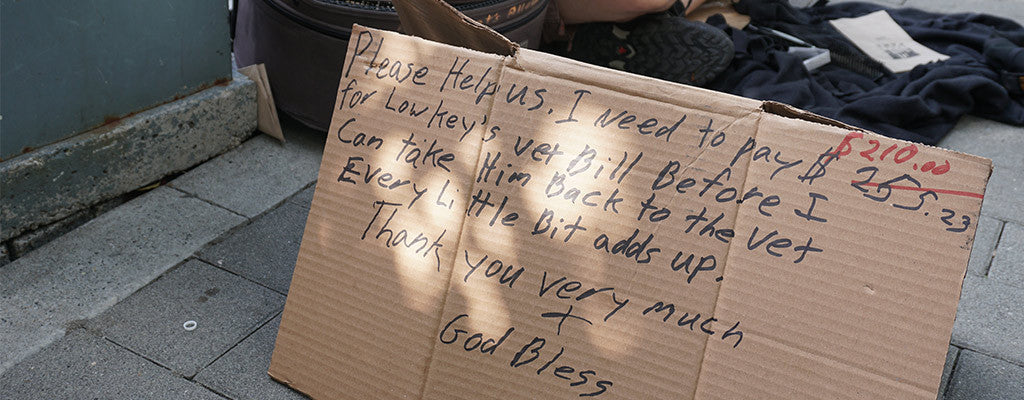 Please Help us. I need to pay $ $210.00
255.23
for Lowkey's vet Bill Before I
Can take Him Back to the vet
Every Little Bit adds up.
Thank you very much
+
God Bless